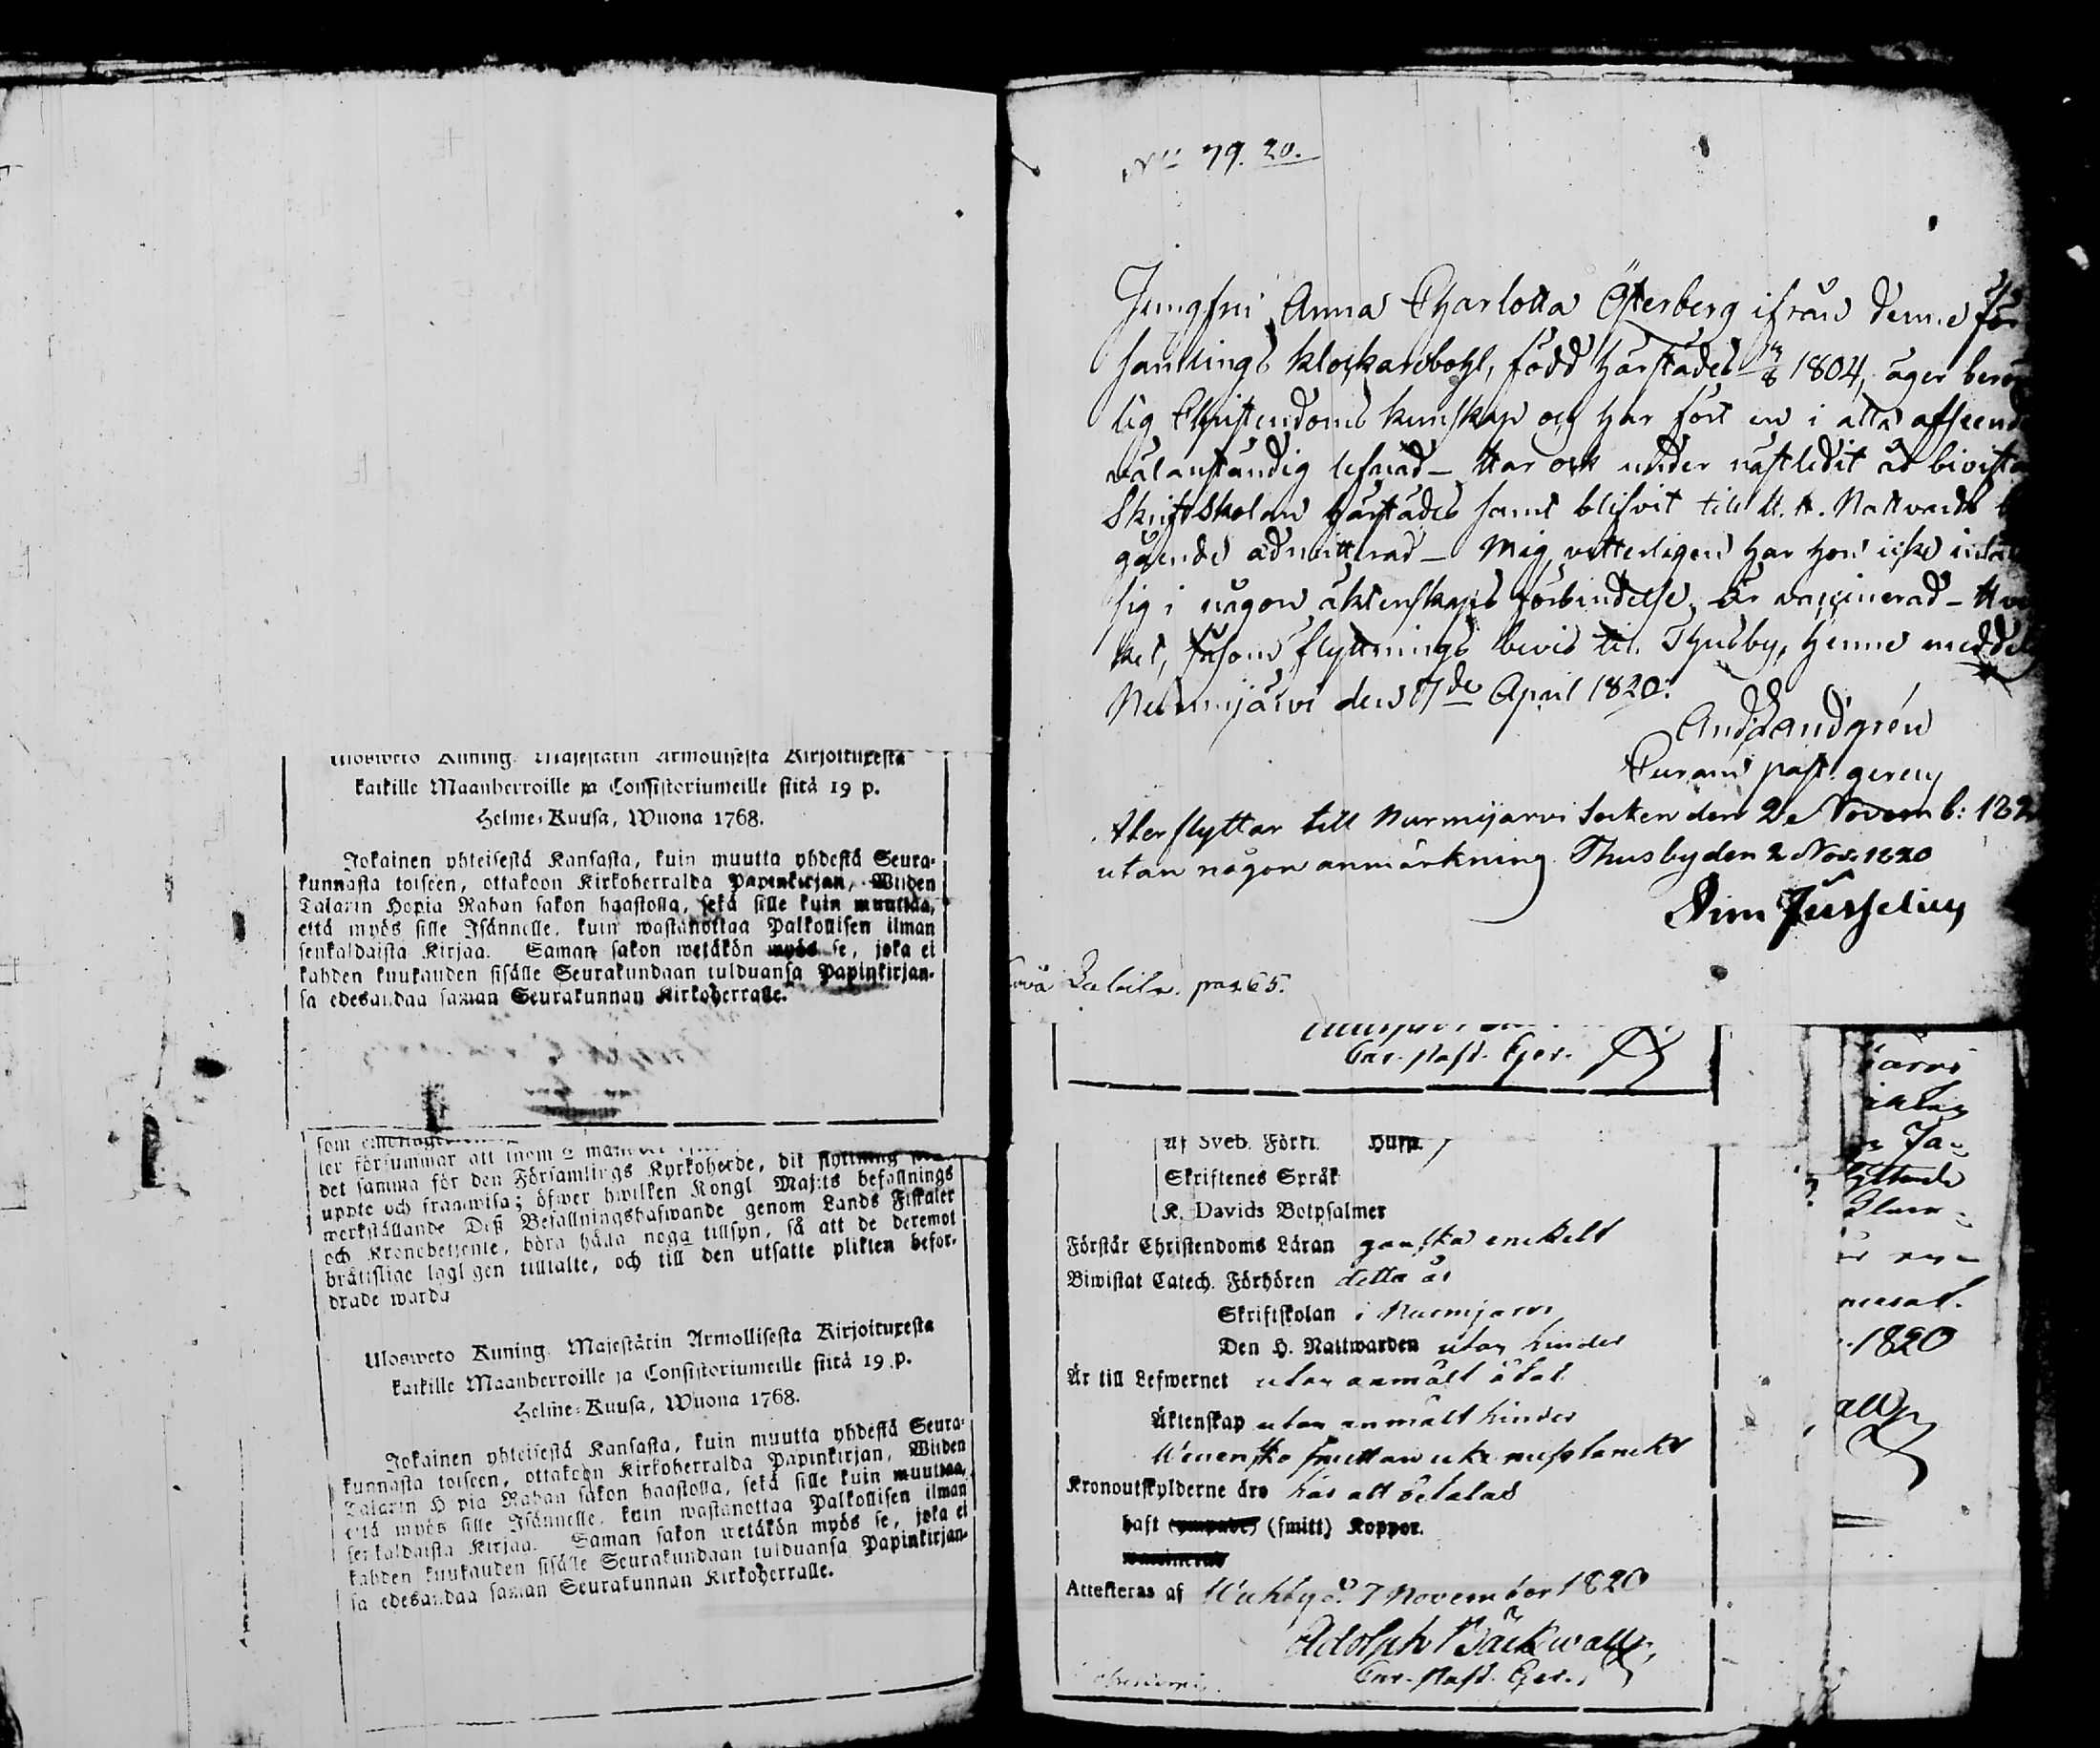 Ulosweto Kuning. Majestätin Armollisesta Kirjoituxesta
kaikille Maanherroille ja Consistoriumeille siitä 19 p.
Helme-Kuusa, Wuona 1768.
Jokainen yhteisestä Kansasta, kuin muutta yhdestä Seura-
kunnasta toiseen, ottakoon Kirkoherralda Papinkirjan, Wijden
Talarin Hopia Rahan sakon haastolla, sekä sille kuin muuttaa,
että myös sille Isännelle, kuin wastanottaa Palkollisen ilman
senkaldaista Kirjaa. Saman sakon wetäkön myös se, joka ei
kahden kuukauden sisälle Seurakundaan tulduansa Papinkirjan-
sa edesandaa saman Seurakunnan Kirkoherralle.
som
ler försummar att inom 2
det samma för den Församlings Kyrkoherde, dit flyttning
uppte och framwisa; öfwer hwilken Kongl Maj:ts befallnings
werkställande Deß Befallningshafwande genom Lands Fiskaler
och Kronobetjente, böra hålla noga tillsyn, så att de deremot
bråtislige lagl gen tilltalte, och till den utsatte plikten befor-
drade warda
Ulosweto Kuning. Majestätin Armollisesta Kirjoituxesta
kaikille Maanherroille ja Consistoriumeille siitä 19 p.
Helme-Kuusa, Wuona 1768.
Jokainen yhteisestä Kansasta, kuin muutta yhdestä Seura-
kunnasta toiseen, ottakoon Kirkoherralda Papinkirjan, Wijden
Talarin H pia Rahan sakon haastolla, sekä sille kuin muuttaa,
että myös sille Isännelle, kuin wastanottaa Palkollisen ilman
senkaldaista Kirjaa. Saman sakon wetäkön myös se, joka ei
kahden kuukauden sisälle Seurakundaan tulduansa Papinkirjan-
sa edesandaa saman Seurakunnan Kirkoherralle.
No 79. 20.
Jungfru Anna Charlotta Österberg ifrån denne För
samlings Klockarebohl, född härstädes 1804, äger beröm
lig Christendoms kunskap och har fört en i alla afseende
wälanständig lefnad – Har ock under nästledit år bivistat
Skriftskolan härstädes samt blifvit till H. H. Nattvards
gående admitterad – Mig vetterligen har hon icke inlåtit
sig i någon äktenskaps förbindelse, Är vaccinerad – Hvil
ket, såsom flyttnings bevis till Thusby, henne meddelas
Nurmijärvi den 7de April 1820.
And Landgrén
Curam past. gerens
Åter flyttar till Nurmijärvi Socken den 2 Novemb: 182
utan någon anmärkning. Thusby den 2 Nov. 1820
Sim Jusselius
pag. 65.
Cur. Past. Ger.
af Sveb. Förkl. Husta.
Skriftenes Språk
K. Davids Botpsalmer
Förstår Christendoms Läran ganska enckelt
Biwistat Catech. Förhören detta år
Skriftskolan i Nurmijärvi
Den H. Nattwarden utan hinder
Är till Lefwernet utan anmält åtal
Äktenskap utan anmält hinder
Kronoutskylderne äro här alt betalas
haft (smitt) Koppor.
Attesteras af Wichty d. 7 November 1820
Adolph Bäckwall
Cur. Past. Ger.
järvi
1820